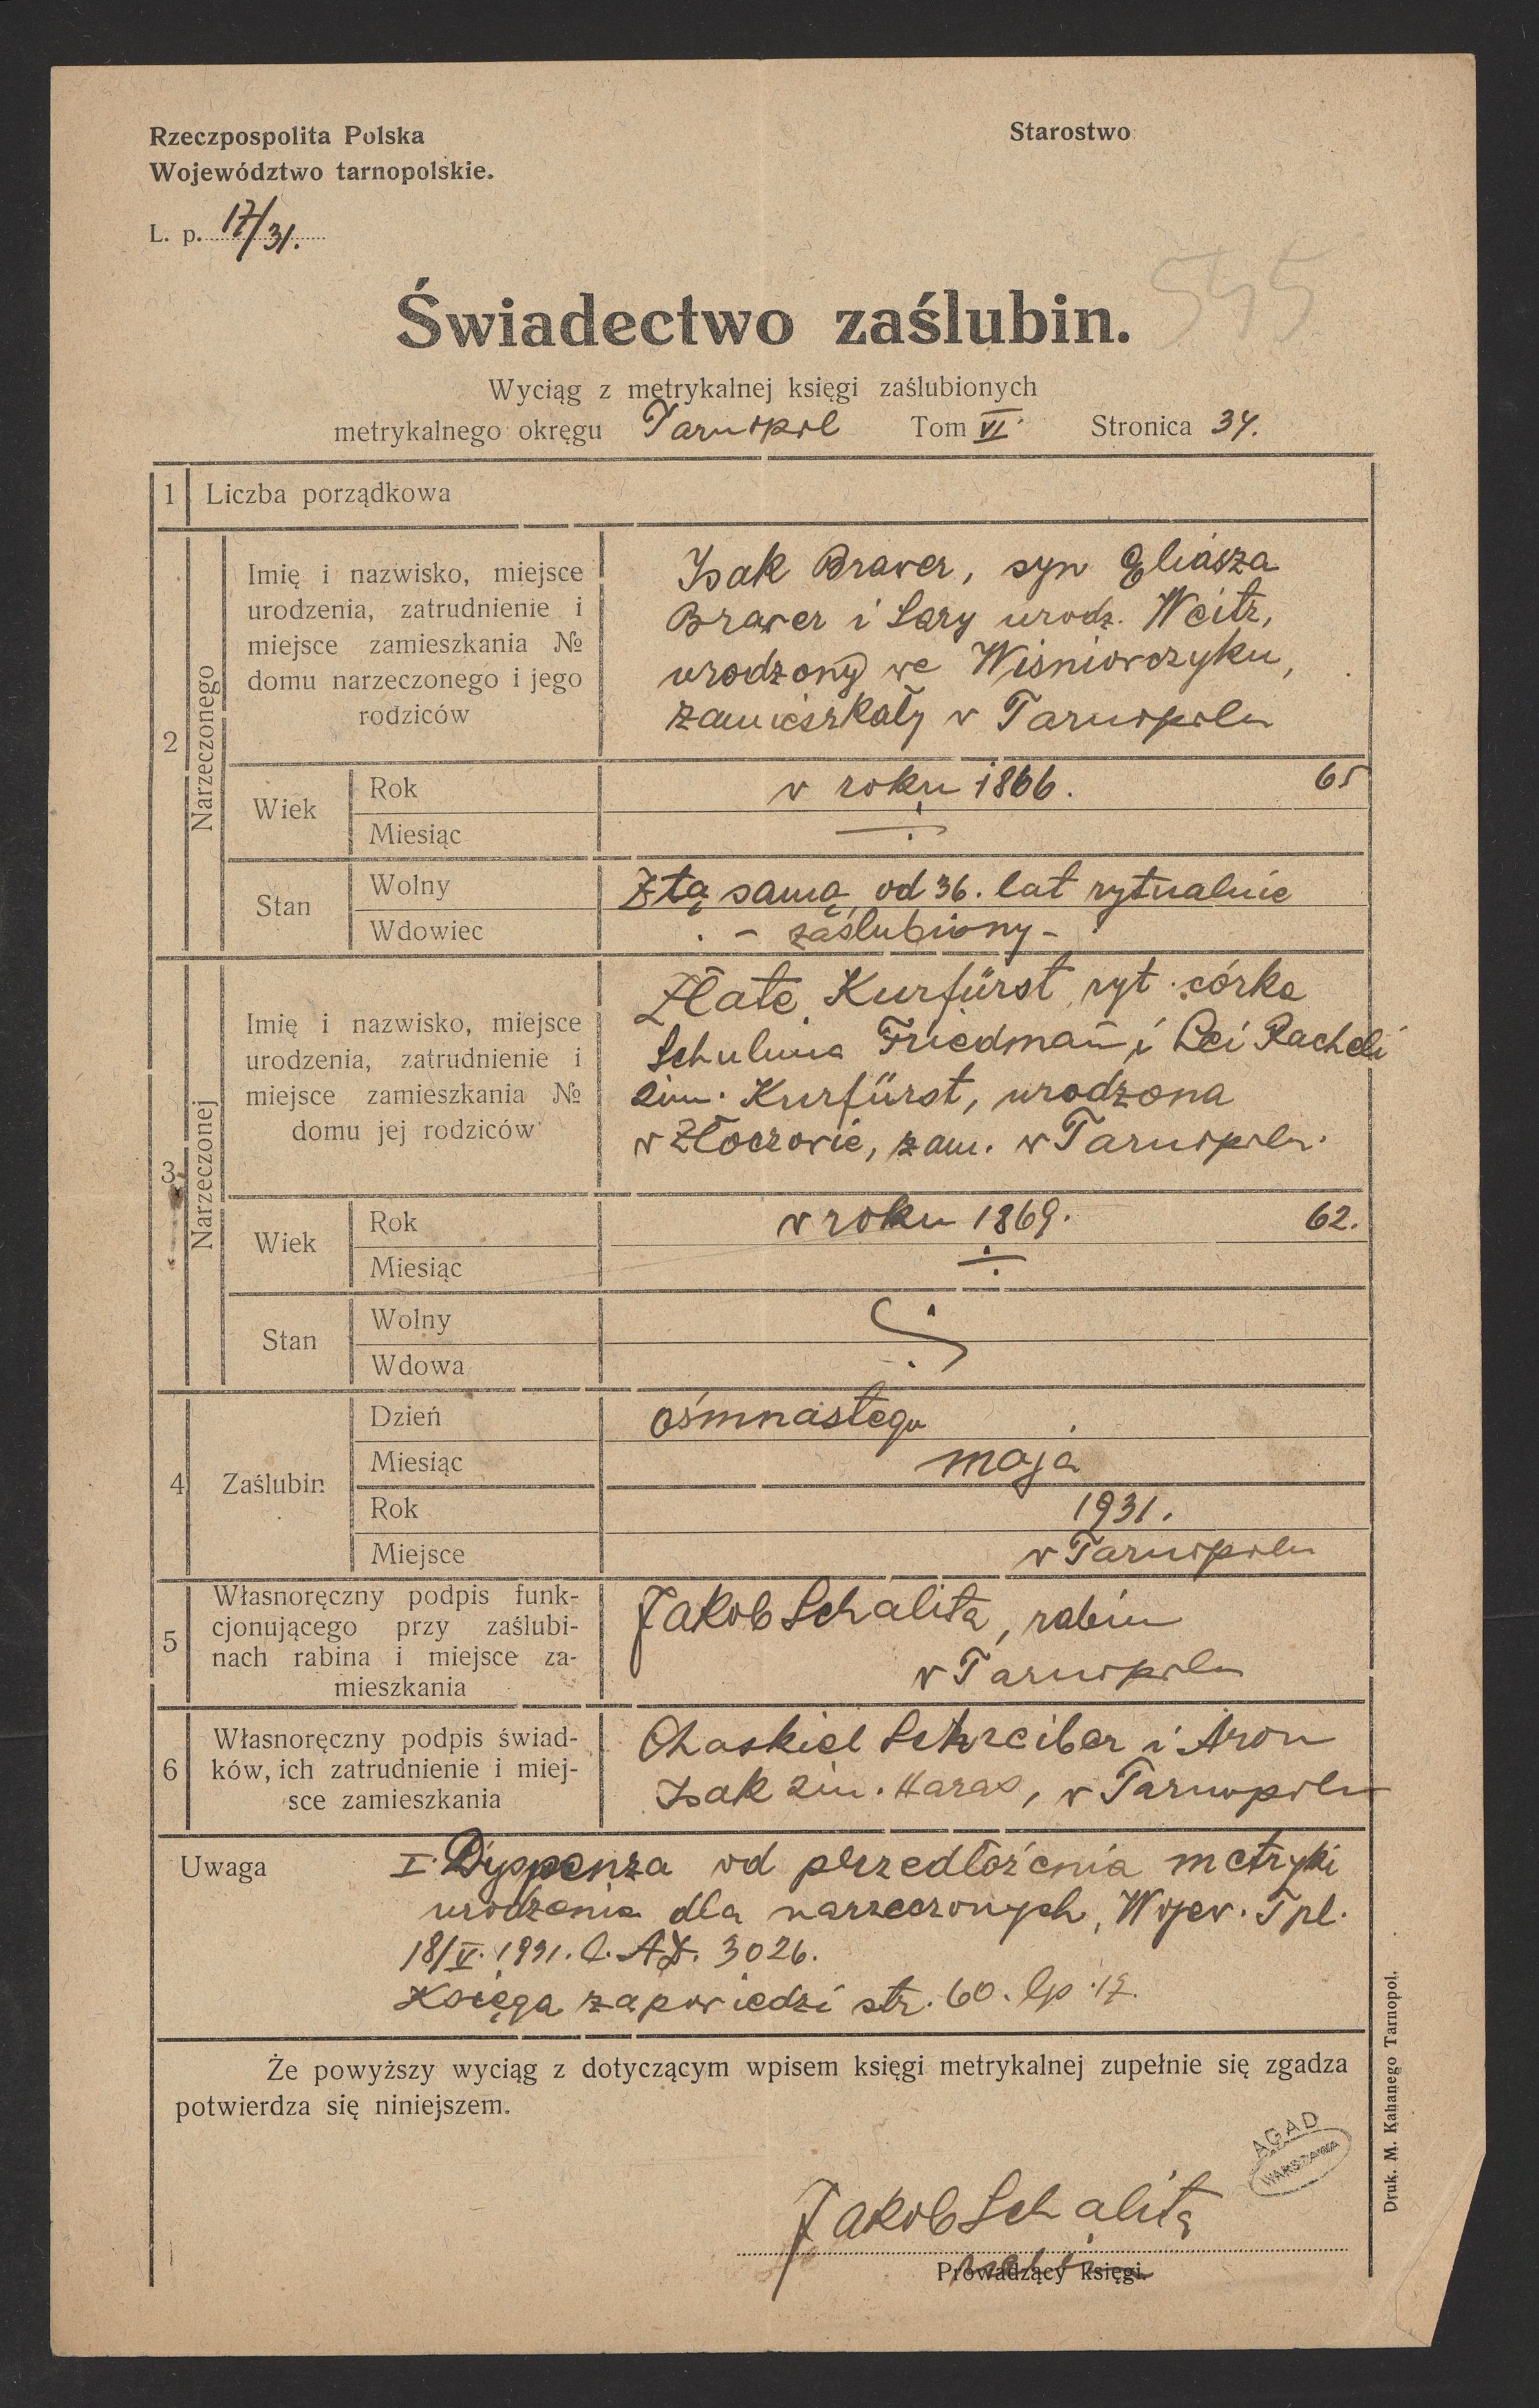 Rzeczpospolita Polska
Starostwo
Województwo tarnopolskie.
L. p. 17/31.
545
Świadectwo zaślubin.
Wyciąg z metrykalnej księgi zaślubionych
metrykalnego okręgu Tarnopol Tom VI. Stronica 34.
1 Liczba porządkowa
2 Narzeczonego
Imię i nazwisko, miejsce
urodzenia, zatrudnienie i
miejsce zamieszkania №
domu narzeczonego i jego
rodziców
Isak Braver, syn Eliasza
Braver i Sary urodz. Weitz,
urodzony we Wiśniowczyku,
zamieszkały w Tarnopolu
Wiek
Rok w roku 1866. 65
Miesiąc
Stan
Wolny Z tą samą od 36. lat rytualnie
Wdowiec - zaślubiony -
3 Narzeczonej
Imię i nazwisko, miejsce
urodzenia, zatrudnienie i
miejsce zamieszkania №
domu jej rodziców
Złate Kurfürst, ryt. córka
Schulima Friedman i Lei Racheli
2im. Kurfürst, urodzona
w Złoczowie, zam. w Tarnopolu.
Wiek
Rok w roku 1869. 62.
Miesiąc
Stan
Wolny
Wdowa
4 Zaślubin
Dzień ośmnastego
Miesiąc maja
Rok 1931.
Miejsce w Tarnopolu
5 Własnoręczny podpis funk-
cjonującego przy zaślubi-
nach rabina i miejsce za-
mieszkania
Jakob Schalita, rabin
w Tarnopolu
6 Własnoręczny podpis świad-
ków, ich zatrudnienie i miej-
sce zamieszkania
Chaskiel Schreiber i Aron
Isak 2im. Haras, w Tarnopolu
Uwaga I. Dyspenza od przedłożenia metryki
urodzenia dla narzeczonych, Wojew. Tpl.
18/V. 1931. l. AD. 3026.
Księga zapowiedzi str. 60. lp. 17.
Że powyższy wyciąg z dotyczącym wpisem księgi metrykalnej zupełnie się zgadza
potwierdza się niniejszem.
AGAD
WARSZAWA
Jakob Schalita
Prowadzący księgi.
Druk. M. Kahanego Tarnopol.